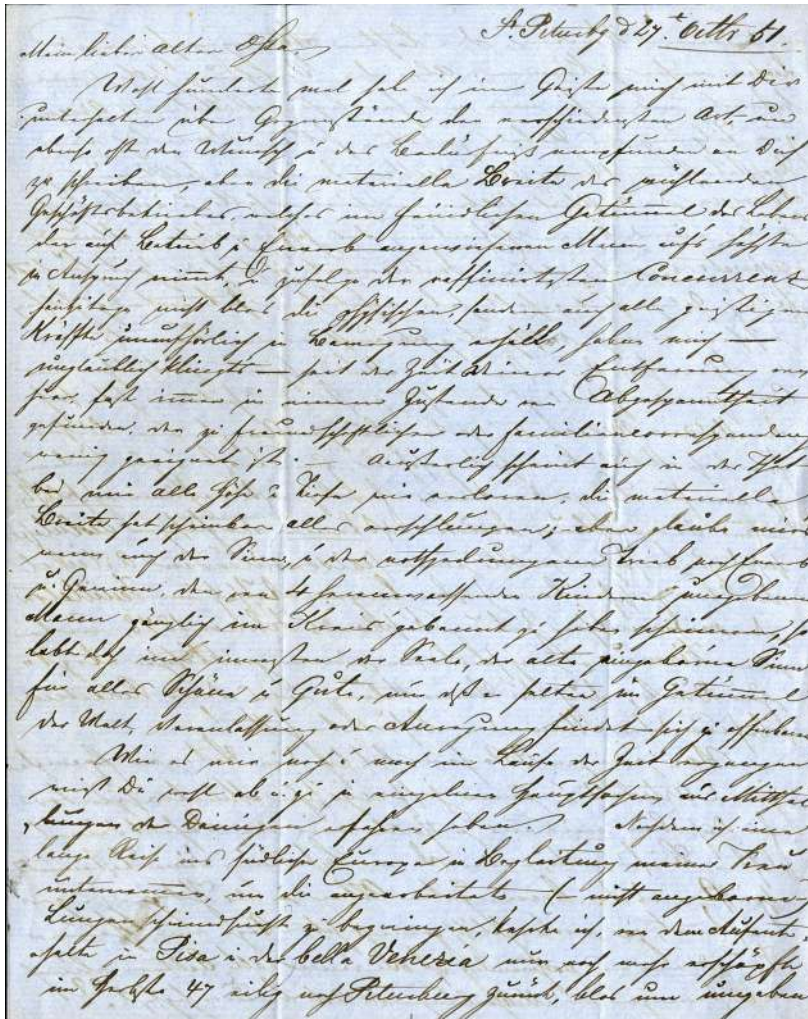 St. Petersbg d 27t. Octbr 51.
Mein lieber alter
Wohl hunderte mal habe ich im Geiste mich mit Dir
unterhalten über Gegenstände der verschiedensten Art, und
ebenso oft den Wunsch u das Bedürfniß empfunden an Dich
zu schreiben, aber die materielle Breite des
Geschäftsbetriebes, welches im feindlichen Getümmel des Lebens
den auf Betrieb u Erwerb angewiesenen Mann aufs höchste
in Anspruch nimmt, u zufolge der raffinirtesten Concurrenz
heutzutage nicht blos die physischen, sondern auch alle geistigen
Kräfte unaufhörlich in Bewegung erhält, haben mich —
unglaublich klingts — seit der Zeit Deiner Entfernung von
hier, fast immer in einem Zustande von Abgespanntheit
gefunden, der zu freundschaftlicher oder Familiencorrespondenz
wenig geeignet ist. — Äußerlich scheint auch in der That
bei mir alle Höhe u Tiefe wie verloren, die materielle
Breite hat scheinbar alles verschlungen; aber glaube mir
wenn auch der Sinn, u der nothgedrungene Trieb nach Erwerb
u Gewinn, den von 4 heranwachsenden Kindern umgebenen
Mann gänzlich im Kreis gebannt zu haben scheinen, so
lebt doch im innersten der Seele, der alte angeborne Sinn
für alles Schöne u Gute, nur daß er selten im Getümmel
der Welt, Veranlassung oder Anregung findet sich zu offenbaren
Wie es mir nach u nach im Laufe der Zeit ergangen
wirst Du wohl ab u zu in einzelnen Hauptsachen aus Mitthei-
lungen der Deinigen erfahren haben. Nachdem ich eine
lange Reise ins südliche Europa in Begleitung meiner Frau
unternommen, um die angearbeitete (– nicht angeborne)
Lungenschwindsucht zu , kehrte ich, von dem Aufent-
halte in Pisa u der bella Venezia nur noch mehr erschöpft
im Herbste 47 eilig nach Petersburg zurück, blos um umgeben